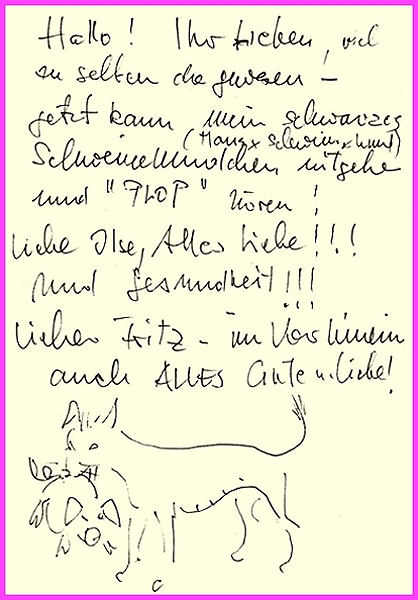 Hallo! Ihr Lieben, viel
zu selten da gewesen –
jetzt kann mein schwarzes
(Maus x Schwein x Hund)
Schweinehundchen mitgehen
und "PLOP" hören!
Liebe Ilse, Alles Liebe!!!
und Gesundheit!!!
Lieber Fritz – im Vorhinein
auch ALLES Gute u. Liebe!